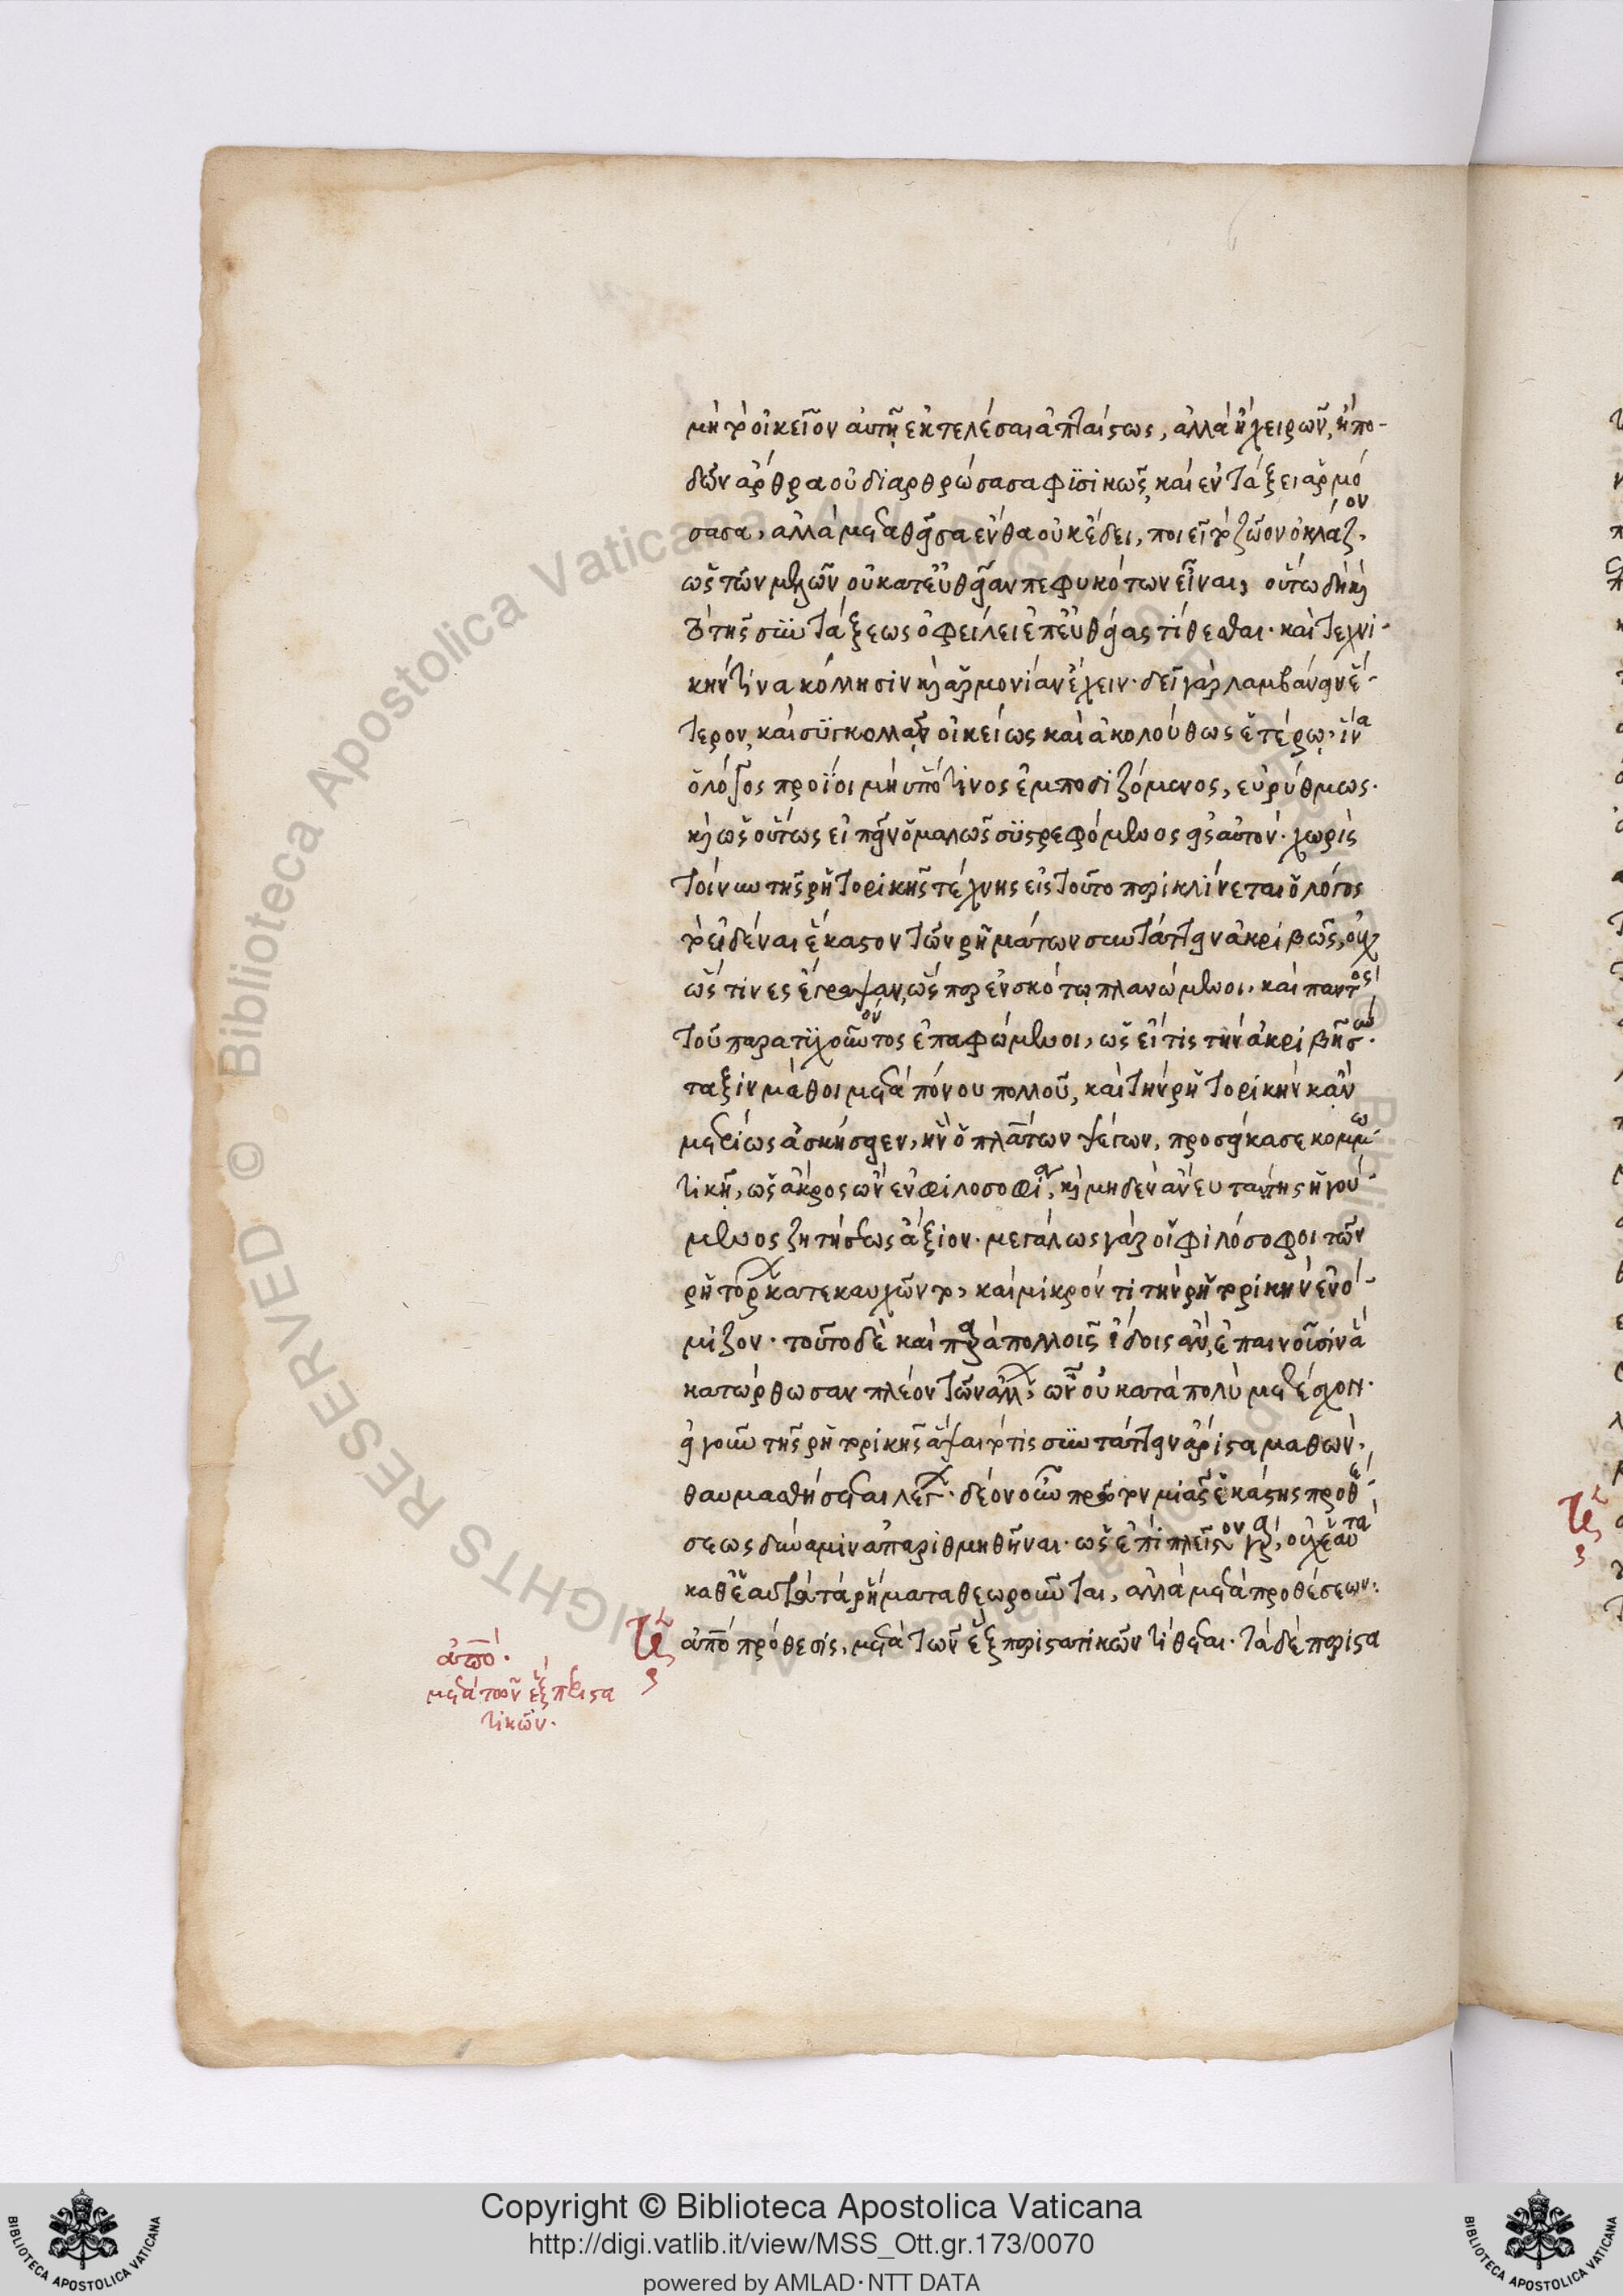 μὴ τὸ οἰκεῖον αὐτῆ ἐκτελέσαι ἀπταίστως, ἀλλὰ ἢ χειρῶν, ἢ πο-
δῶν ἄρθρα οὐ διαρθρώσασα φϊσικῶς, καὶ ἐν τάξει ἁρμό
σασα, ἀλλὰ μεταθεῖσα ἔνθα οὐκ ἔδει, ποιεῖ τὸ ζῶον ὀκλάζον,
ὡς τῶν μελῶν οὐ κατευθεῖαν πεφυκότων εἶναι, οὕτω δὴ καὶ
τὸ τῆς συντάξεως ὀφείλει ἐπευθείας τίθεσθαι. καὶ τεχνι-
κήν τινα κόλλησιν καὶ ἁρμονίαν ἔχειν. δεῖ γὰρ λαμβάνειν ἕ-
τερον, καὶ συγκολλᾶν οἰκείως καὶ ἀκολούθως ἑτέρω. ἵνα
ὁ λόγος προΐοι μὴ ὑπό τινος ἐμποδιζόμενος, εὐρύθμως.
καὶ ὡς οὕτως εἰπεῖν ὁμαλῶς συστρεφόμενος εἰς αὐτόν. χωρὶς
τοίνυν τῆς ῥητορικῆς τέχνης εἰς τοῦτο περικλίνεται ὁ λόγος
τὸ εἰδέναι ἕκαστον τῶν ῥημάτων συντάττειν ἀκριβῶς, οὐχ
ὥς τινες ἔγραψαν, ὥσπερ ἐν σκότω πλανώμενοι. καὶ παντὸς
τοῦ παρατυχόντος ἐπαφώμενοι, ὡς εἴ τις τὴν ἀκριβῆ σύν
ταξιν μάθοι μετὰ πόνου πολλοῦ, καὶ τὴν ῥητορικὴν κἂν
μετρίως ἀσκήσειεν, ἣν ὁ πλάτων ψέγων, προσείκασε κομμω
τικῆ, ὡς ἄκρος ὢν ἐν φιλοσοφία, καὶ μηδὲν ἄνευ ταύτης ἡγού-
μενος ζητήσεως ἄξιον. μεγάλως γὰρ οἱ φιλόσοφοι τῶν
ῥητόρων κατεκαυχῶντο, καὶ μικρόν τι τὴν ῥητορικὴν ἐνό-
μιζον. τοῦτο δὲ καὶ παρὰ πολλοῖς ἴδοις ἂν, ἐπαινοῦσιν ἃ
κατώρθωσαν πλέον τῶν ἄλλων, ὧν οὐ κατὰ πολὺ μετέσχον.
εἰ γοῦν τῆς ῥητορικῆς ἅψαιτό τις συντάττειν ἄριστα μαθὼν,
θαυμασθήσεται λέγων. δέον οὖν πρότερον μιᾶς ἑκάστης προθέ
σεως δύναμιν ἀπαριθμηθῆναι. ὡς ἐπιπλεῖστον γὰρ, οὐχ αὐτὰ
καθ' ἑαυτὰ τὰ ῥήματα θεωροῦνται, ἀλλὰ μετὰ προθέσεων.
ἀπὸ πρόθεσις, μετὰ τῶν ἐξ περιστατικῶν τίθεται. τὰ δὲ περιστα
ἀπό.
μετὰ τῶν ἓξ περιστα
τικῶν.
Copyright © Biblioteca Apostolica Vaticana
http://digi.vatlib.it/view/MSS_Ott.gr.173/0070
powered by AMLAD·NTT DATA
BIBLIOTECA APOSTOLICA VATICANA
BIBLIOTECA APOSTOLICA VATICANA